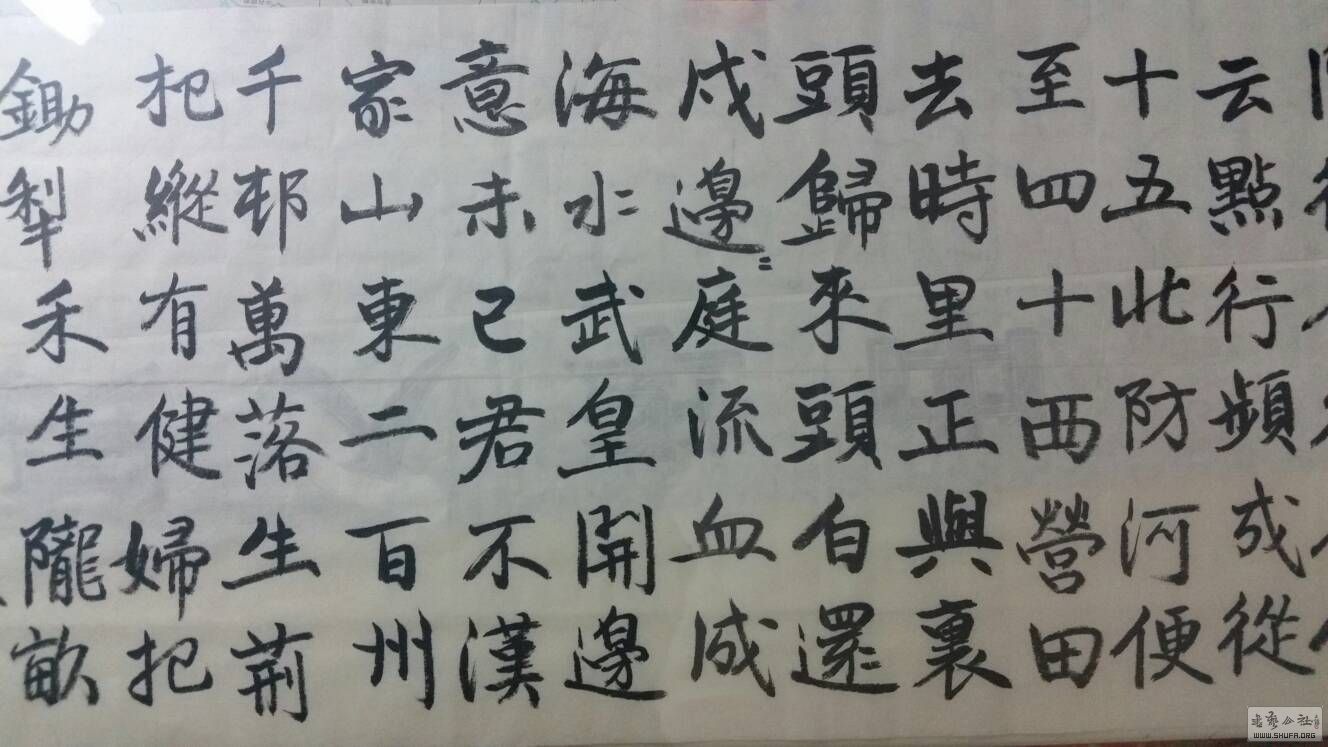 云點行頻成從
十五北防河便
至四十西營田
去時里正與裹
頭歸來頭白還
戍邊〻庭流血成
海水武皇開邊
意未已君不漢
家山東二百州
千邨萬落生荊
杞縱有健婦把
鋤犁禾生隴畝
书艺公社
WWW.SHUFA.ORG